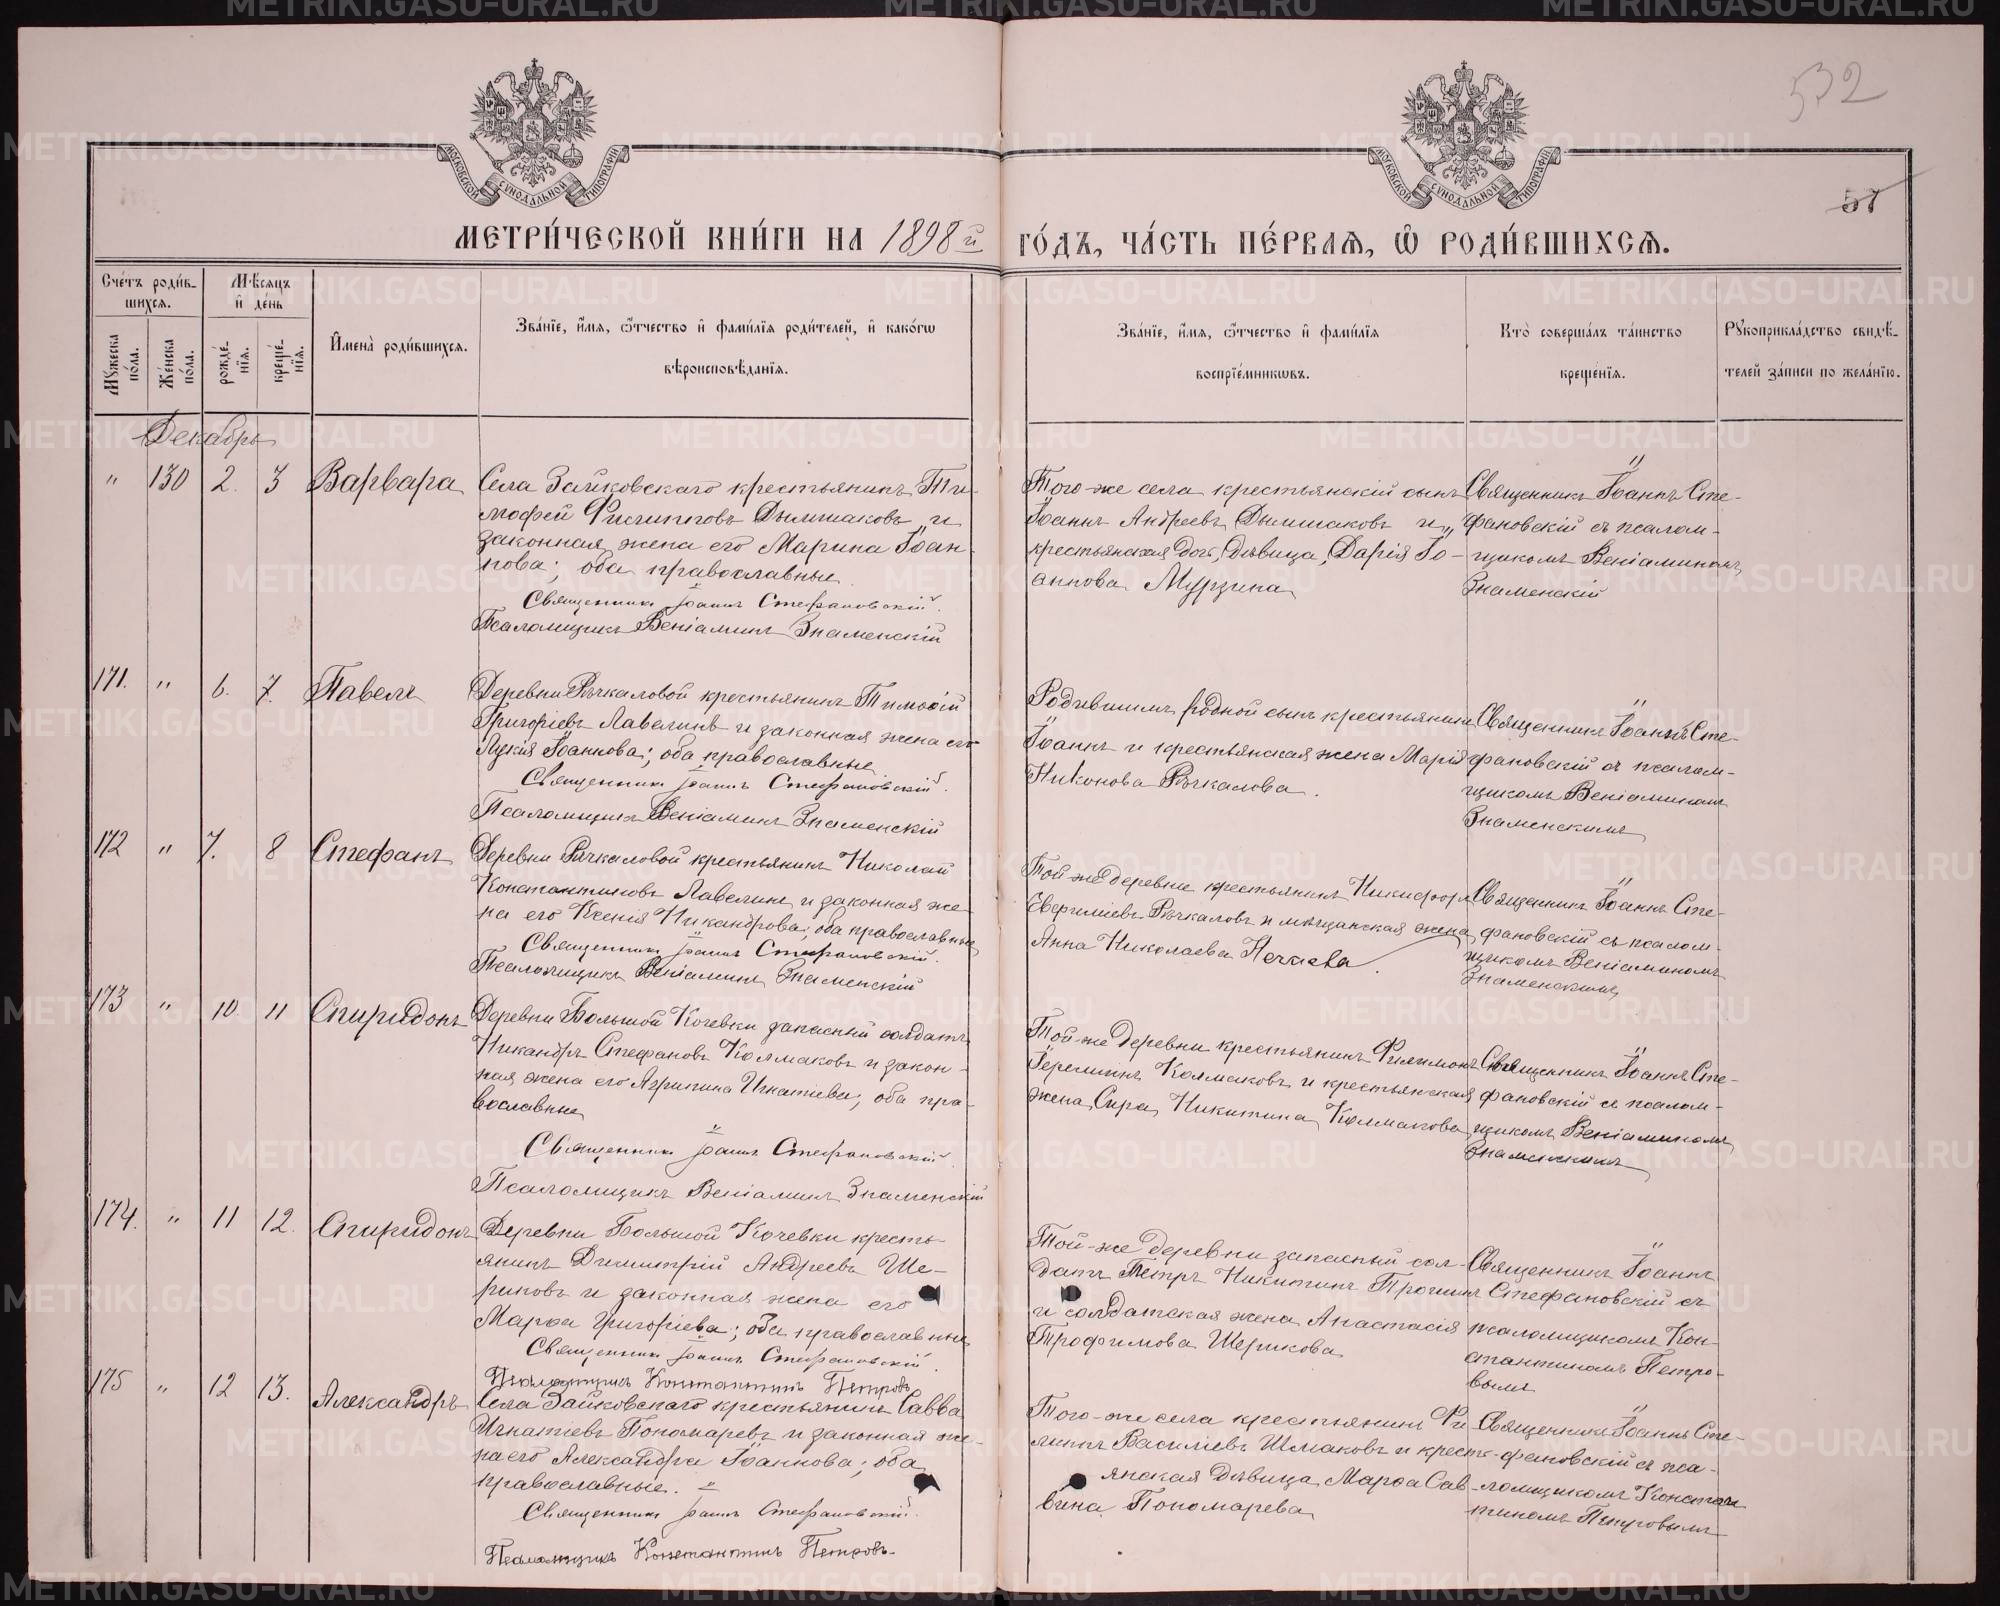 532
57
МОСКОВСКОЙ СѴНОДАЛЬНОЙ ТИПОГРАФІИ
МОСКОВСКОЙ СѴНОДАЛЬНОЙ ТИПОГРАФІИ
МЕТРИ́ЧЕСКОЙ КНИ́ГИ НА 1898й ГО́ДЪ, ЧА́СТЬ ПЕ́РВАѦ, Ѡ҆ РОДИ́ВШИХСѦ.
Сче́тъ роди́в-
шихсѧ.
Мѣ́сѧцъ
и҆ де́нь
Мꙋ́жеска
по́ла.
Же́нска
по́ла.
рожде́-
нїѧ.
креще́-
нїѧ.
И҆мена̀ роди́вшихсѧ.
Зва́нїе, и҆́мѧ, ѻ҆́тчество и҆ фами́лїѧ роди́телей, и҆ како́гѡ
вѣроисповѣ́данїѧ.
Зва́нїе, и҆́мѧ, ѻ҆́тчество и҆ фами́лїѧ
воспрїе́мникѡвъ.
Кто̀ соверша́лъ та́инство
креще́нїѧ.
Рꙋкоприкла́дство свидѣ́-
телей за́писи по жела́нїю.
Декабрь
" 130 2. 3 Варвара
Села Зайковскаго крестьянинъ Ти-
мофей Филипповъ Дымшаковъ и
законная жена его Марина Іоан-
нова; оба православные.
Священникъ Іоаннъ Стефановскій.
Псаломщикъ Веніаминъ Знаменскій
Того-же села крестьянскій сынъ
Іоаннъ Андреевъ Дымшаковъ и
крестьянская дочь, дѣвица, Дарія Іо-
аннова Мурзина
Священникъ Іоаннъ Сте-
фановскій съ псалом-
щикомъ Веніаминомъ
Знаменскій
171. " 6. 7. Павелъ
Деревни Рѣчкаловой крестьянинъ Тимоѳій
Григоріевъ Лавелинъ и законная жена его
Лукія Іоаннова; оба православные
Священникъ Іоаннъ Стефановскій.
Псаломщикъ Веніаминъ Знаменскій
Родившимъ родной сынъ крестьянинъ
Іоаннъ и крестьянская жена Марія
Никонова Рѣчкалова.
Священникъ Іоаннъ Сте-
фановскій съ псалом-
щикомъ Веніаминомъ
Знаменскимъ
172 " 7. 8 Стефанъ
Деревни Рѣчкаловой крестьянинъ Николай
Константиновъ Лавелинъ и законная же-
на его Ксенія Никандрова; оба православные
Священникъ Іоаннъ Стефановскій.
Псаломщикъ Веніаминъ Знаменскій
Той-же деревни крестьянинъ Никифоръ
Евфиміевъ Рѣчкаловъ и мѣщанская жена
Анна Николаева Нечаева.
Священникъ Іоаннъ Сте-
фановскій съ псалом-
щикомъ Веніаминомъ
Знаменскимъ
173 " 10 11 Спиридонъ
Деревни Большой Кочевки запасный солдатъ
Никандръ Стефановъ Колмаковъ и закон-
ная жена его Агрипина Игнатіева; оба пра-
вославные
Священникъ Іоаннъ Стефановскій.
Псаломщикъ Веніаминъ Знаменскій
Той-же деревни крестьянинъ Филимонъ
Іеремиинъ Колмаковъ и крестьянская
жена Сира Никитина Колмакова
Священникъ Іоаннъ Сте-
фановскій съ псалом-
щикомъ Веніаминомъ
Знаменскимъ
174. " 11 12. Спиридонъ
Деревни Большой Кочевки кресть-
янинъ Димитрій Андреевъ Ше-
риковъ и законная жена его
Марѳа Григоріева; оба православные
Священникъ Іоаннъ Стефановскій.
Псаломщикъ Константинъ Петровъ
Той-же деревни запасный сол-
датъ Петръ Никитинъ Трошинъ
и солдатская жена Анастасія
Трофимова Шерикова
Священникъ Іоаннъ
Стефановскій съ
псаломщикомъ Кон-
стантиномъ Петро-
вымъ
175 " 12 13. Александръ
Села Зайковскаго крестьянинъ Савва
Игнатіевъ Пономаревъ и законная же-
на его Александра Іоаннова; оба
православные.
Священникъ Іоаннъ Стефановскій.
Псаломщикъ Константинъ Петровъ.
Того-же села крестьянинъ Фи-
липпъ Василіевъ Шмаковъ и кресть-
янская дѣвица Марѳа Сав-
вина Пономарева
Священникъ Іоаннъ Сте-
фановскій съ пса-
ломщикомъ Констан-
тиномъ Петровымъ
METRIKI.GASO-URAL.RU